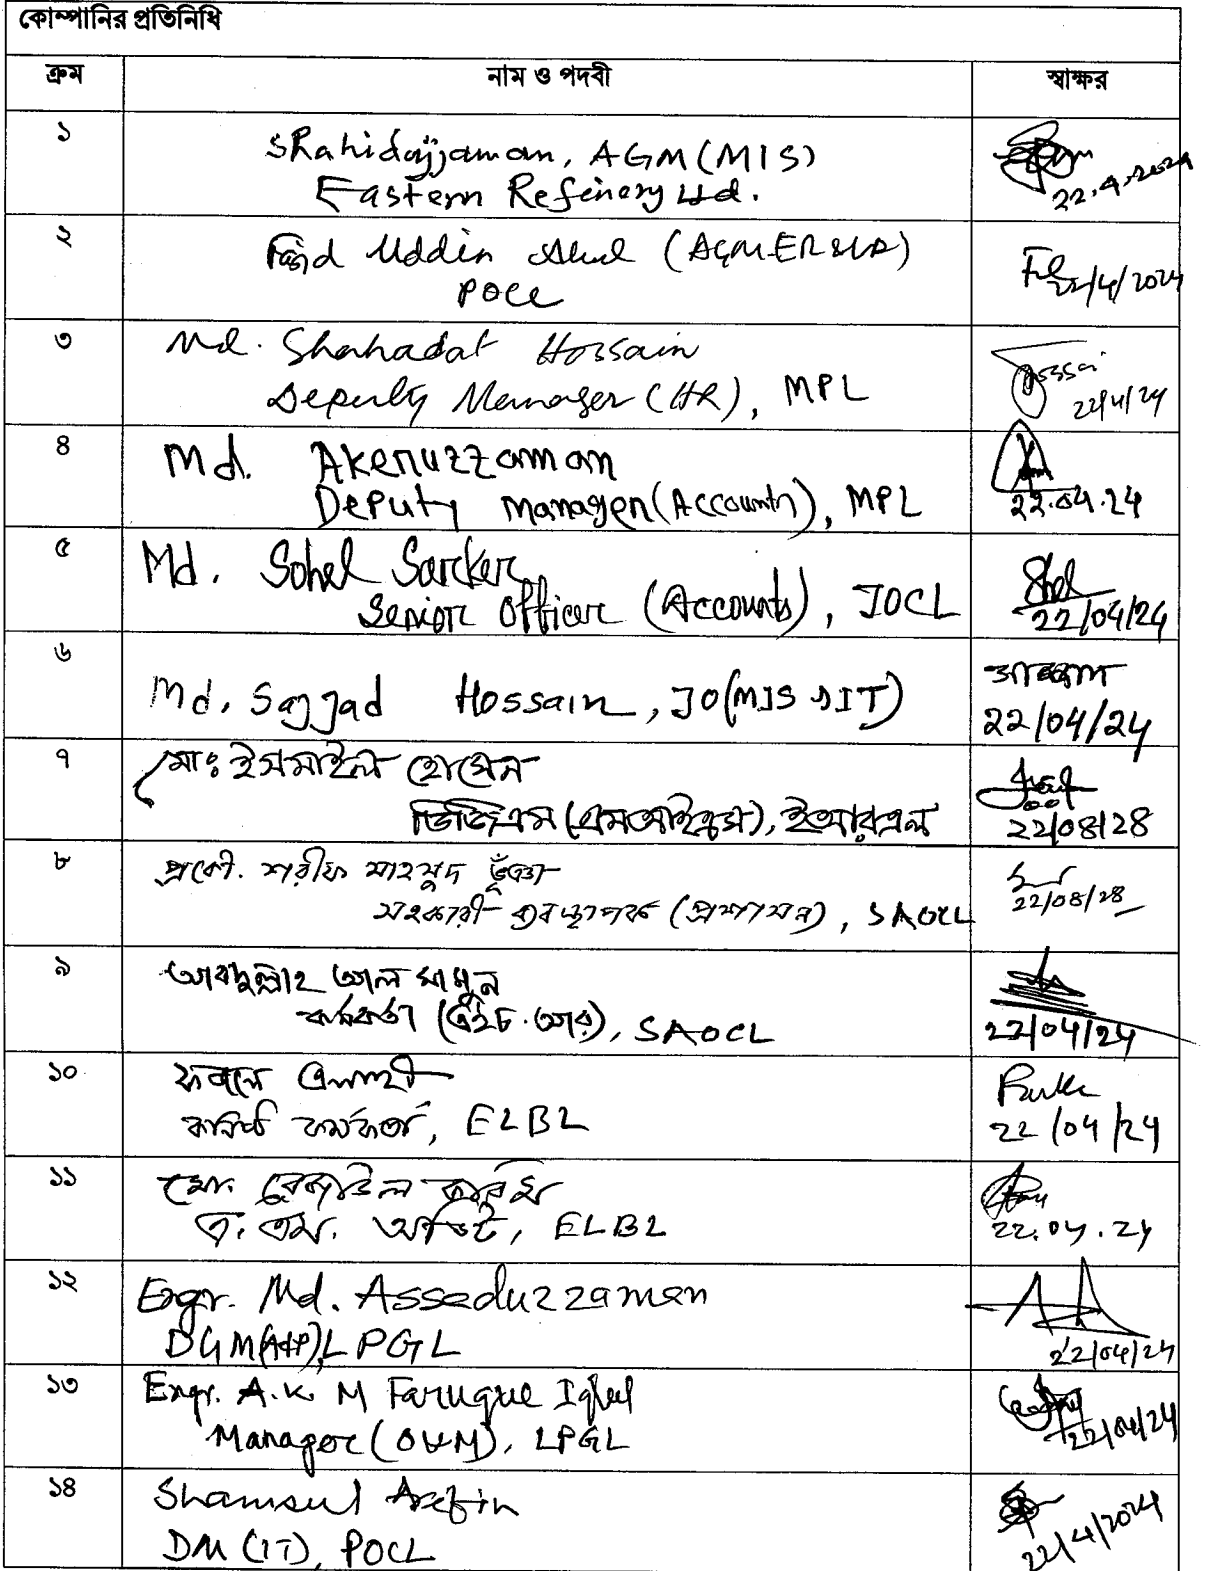 কোম্পানির প্রতিনিধি
ক্রম নাম ও পদবী স্বাক্ষর
১ Shahidujjaman, AGM (MIS)
Eastern Refinery Ltd. 22.4.2024
২ Uddin (AGM-ER&WA)
POCL 22/4/2024
৩ Md. Shahadat Hossain
Deputy Manager (HR), MPL 22/4/24
৪ Md. Akeruzzaman
Deputy Manager (Accounts), MPL 22.04.24
৫ Md. Sohel Sarker
Senior Officer (Accounts), JOCL 22/04/24
৬ Md. Sajjad Hossain, JO(MIS & IT)
22/04/24
৭ মোঃ ইসমাইল হোসেন
ডিজিএম (এমআইএস), ইআরএল ২২/০৪/২৪
৮ প্রকৌ. শরীফ মাহমুদ ভূঁঞা
সহকারী ব্যবস্থাপক (প্রশাসন), SAOCL ২২/০৪/২৪
৯ আবদুল্লাহ আল মামুন
কর্মকর্তা (এইচ.আর), SAOCL 22/04/24
১০ ফজলে এলাহী
কনিষ্ঠ কর্মকর্তা, ELBL 22/04/24
১১ মো. রেজাউল করিম
এ. এম. অডিট, ELBL 22.04.24
১২ Engr. Md. Asseduzzaman
DGM LPGL 22/04/24
১৩ Engr. A.K. M Faruque Iqbal
Manager (O&M), LPGL 22/04/24
১৪ Shamsul Arefin
DM (IT), POCL 22/4/2024